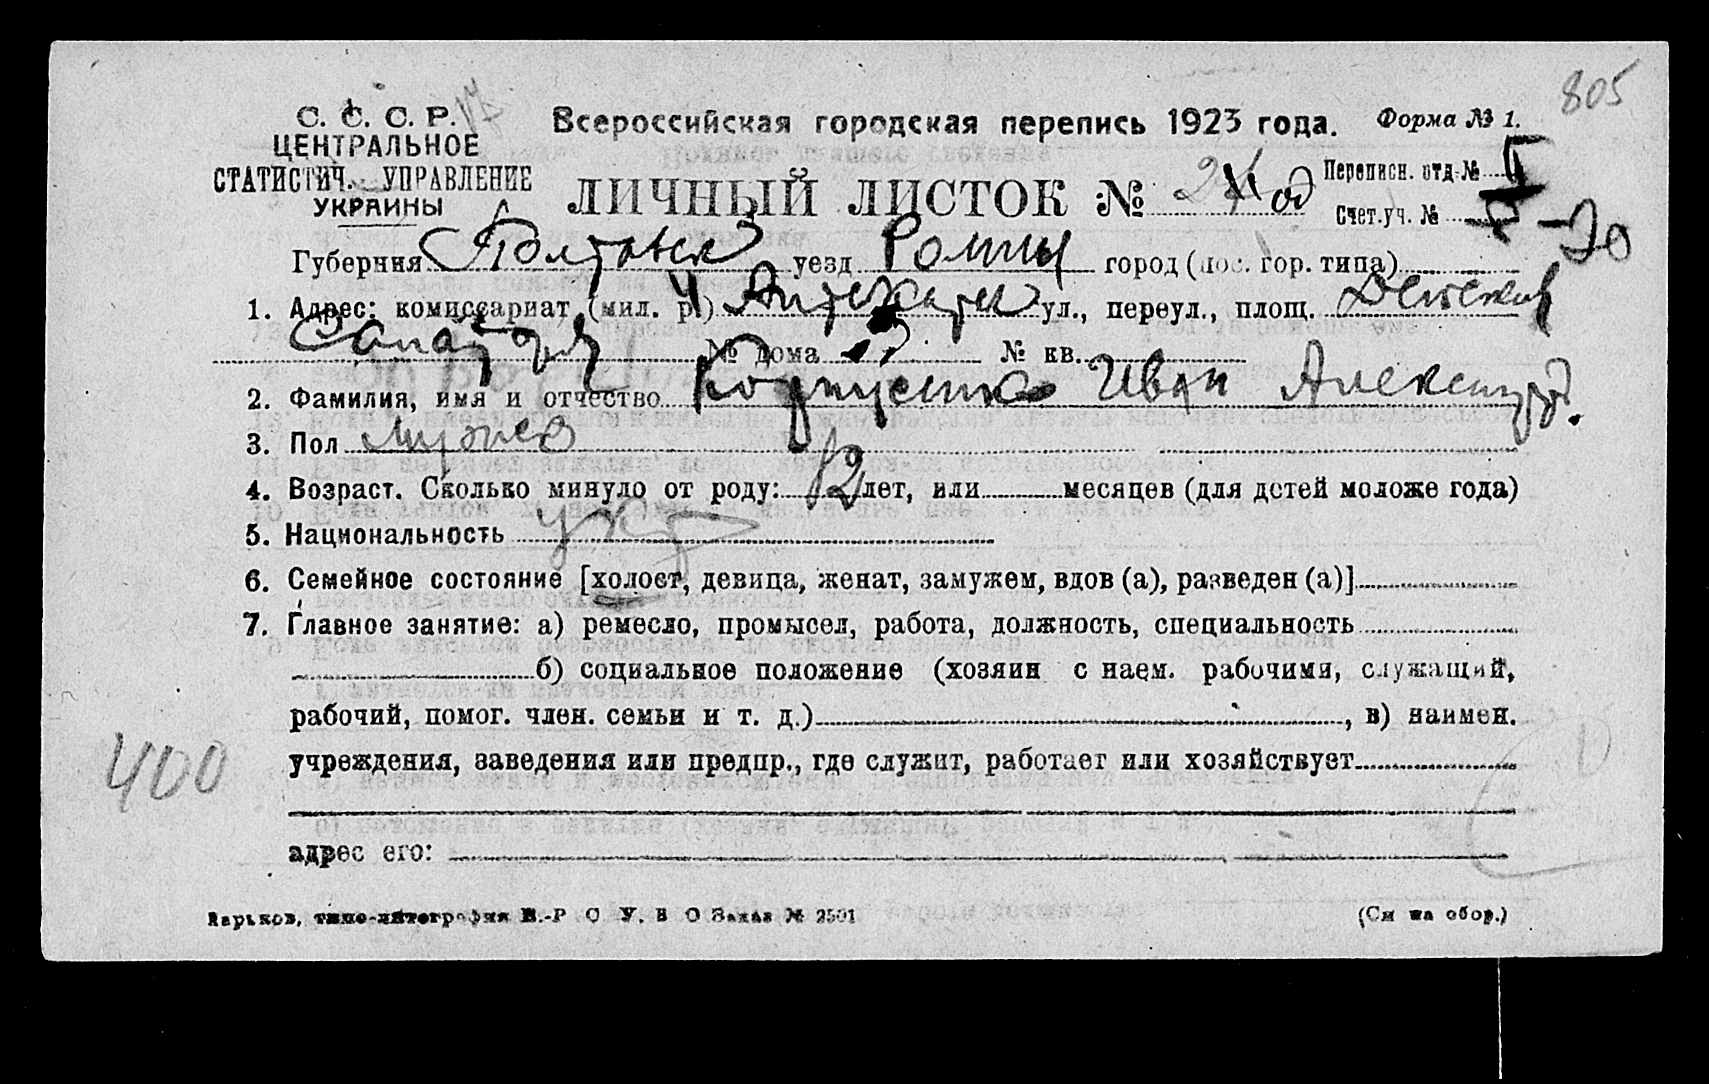 805
С. С. С. Р.
Всероссийская городская перепись 1923 года. Форма № 1.
ЦЕНТРАЛЬНОЕ
СТАТИСТИЧ. УПРАВЛЕНИЕ
УКРАИНЫ
ЛИЧНЫЙ ЛИСТОК №
Переписн. отд. №
Счет. уч. № 20
Губерния Полтавск уезд Ромны город (пос. гор. типа)
1. Адрес: комиссариат (мил. р.) ул., переул., площ. Детский
Санатория № дома № кв.
2. Фамилия, имя и отчество Иван Александр.
3. Пол мужск
4. Возраст. Сколько минуло от роду: 12 лет, или месяцев (для детей моложе года)
5. Национальность укр
6. Семейное состояние [холост, девица, женат, замужем, вдов (а), разведен (а)]
7. Главное занятие: а) ремесло, промысел, работа, должность, специальность
б) социальное положение (хозяин с наем. рабочими, служащий,
рабочий, помог. член. семьи и т. д.) , в) наимен.
учреждения, заведения или предпр., где служит, работает или хозяйствует
400
адрес его:
Харьков, типо-литография В.-Р О У. В О Заказ № 2501
(См на обор.)